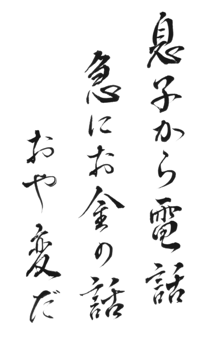 息子から電話
急にお金の話
おや変だ